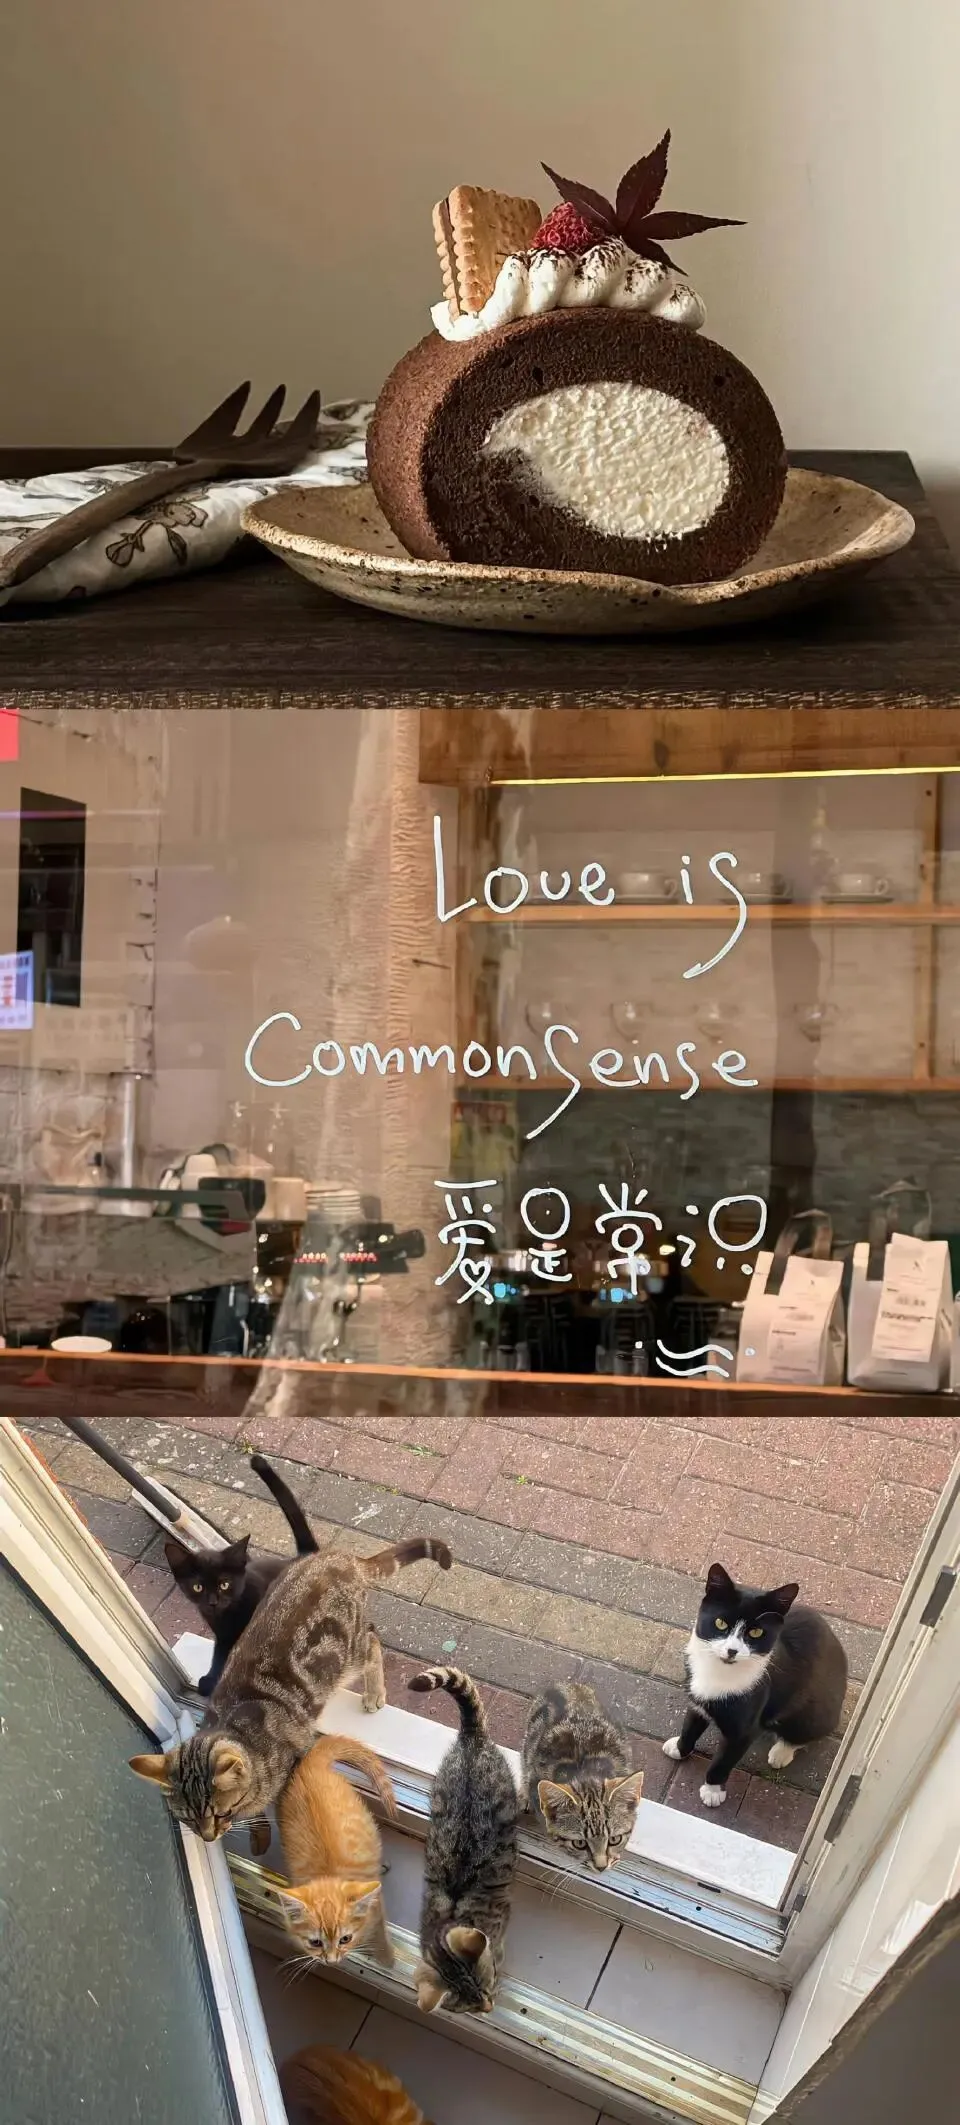 Love is
Commonsense
爱是常识